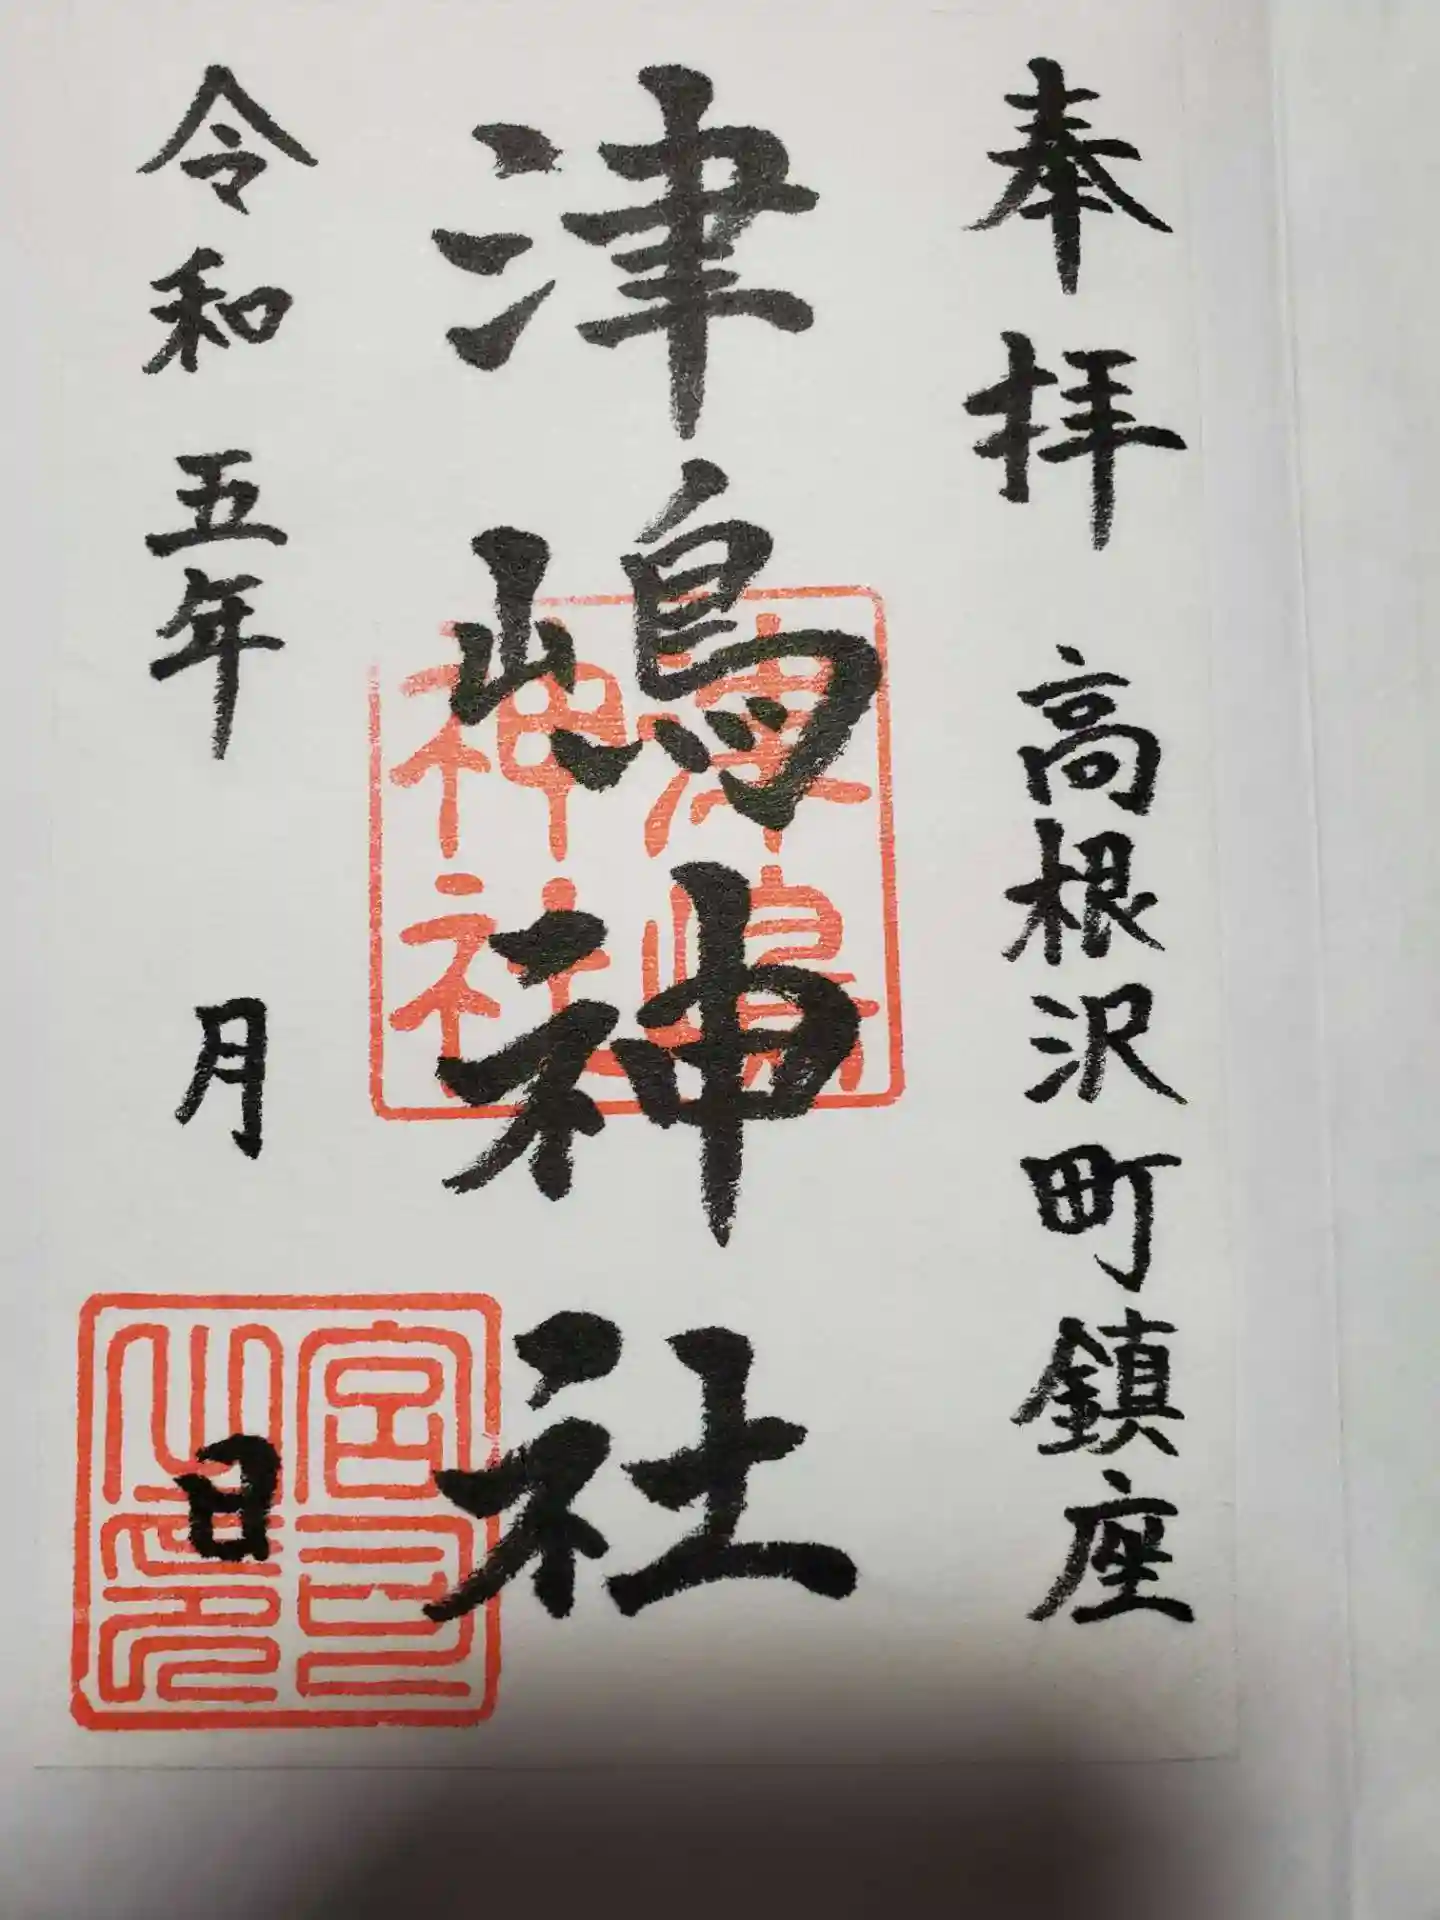 奉拝 高根沢町鎮座
津嶋神社
津嶋
神社
令和五年 月 日
宮司
之印